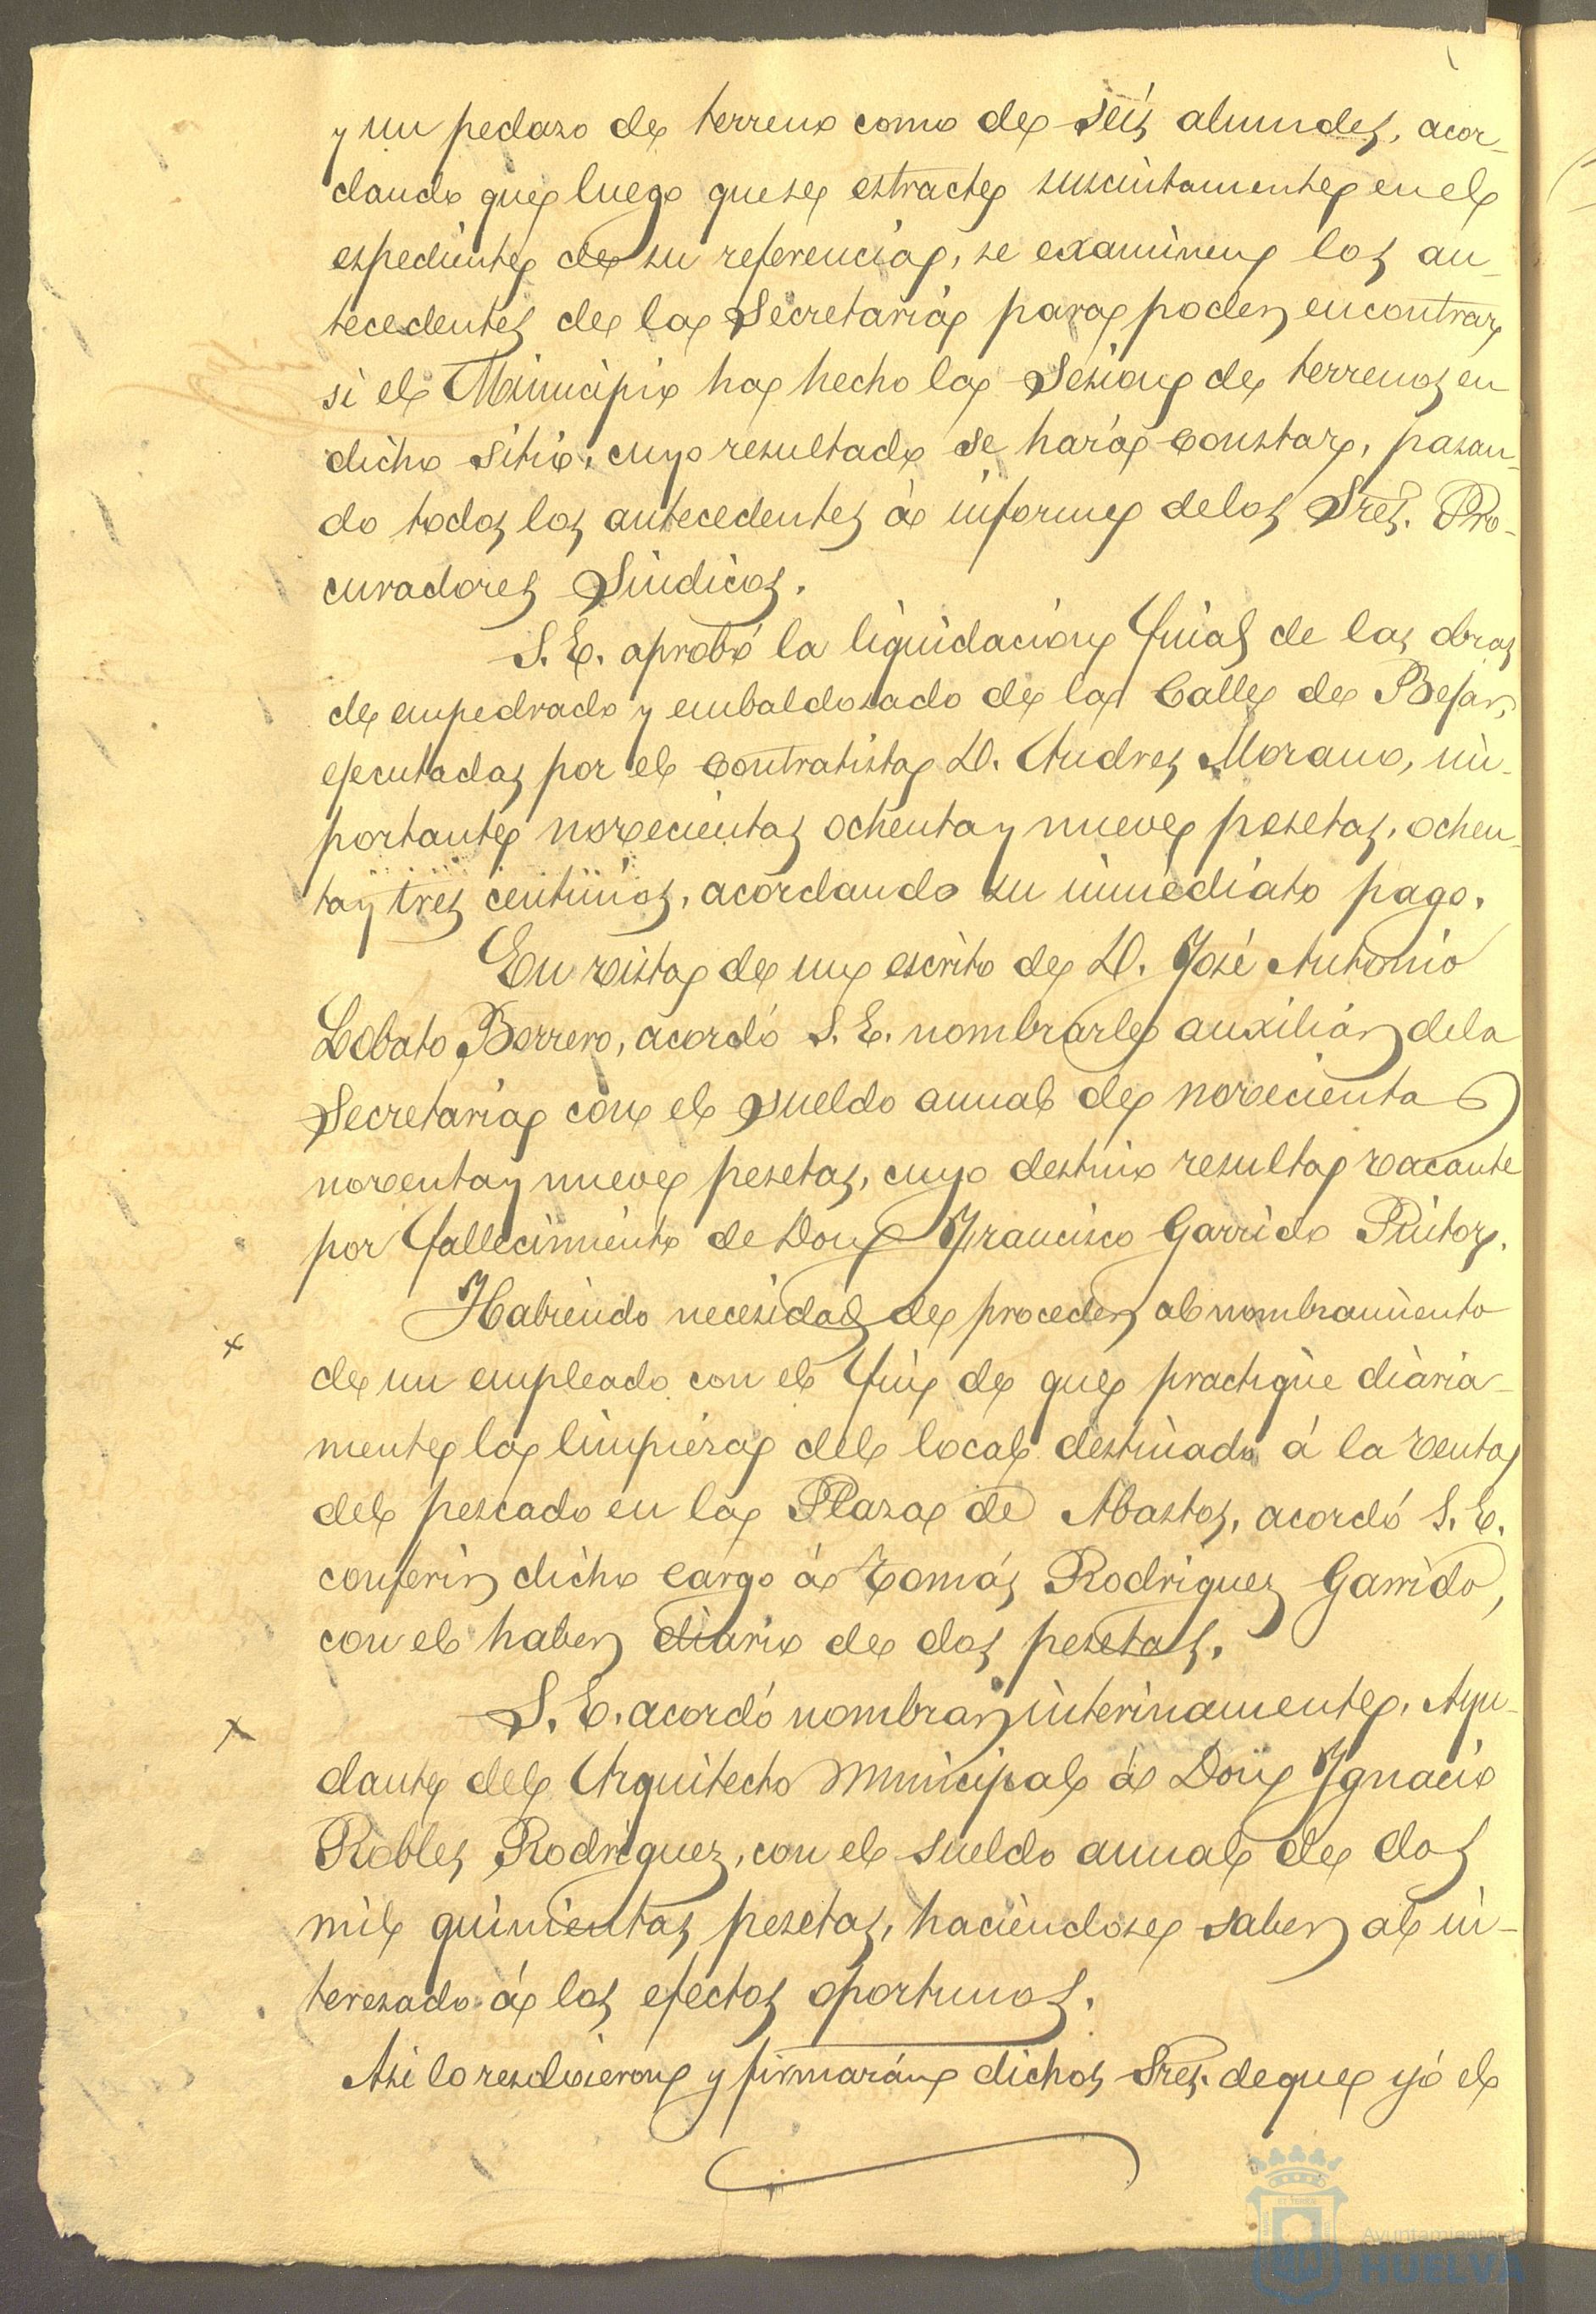 y un pedazo de terreno como de seis almudes, acor-
dando que luego que se estracte suscintamente en el
espediente de su referencia, se examinen los an-
tecedentes de la Secretaría para poder encontrar
si el Municipio ha hecho la Sesion de terrenos en
dicho sitio, cuyo resultado se hará constar, pasan-
do todos los antecedentes á informe de los Sres. Pro-
curadores Sindicos.
S. E. aprobó la liquidacion final de las obras
de empedrado y embaldosado de la Calle de Bejar,
ejecutadas por el contratista D. Andres Morano, im-
portante novecientas ochenta y nueve pesetas, ochen-
ta y tres centimos, acordando su inmediato pago.
En vista de un escrito de D. José Antonio
Lobato Borrero, acordó S. E. nombrarle auxiliar de la
Secretaría con el sueldo annal de novecientas
noventa y nueve pesetas, cuyo destino resulta vacante
por fallecimiento de Don Francisco Garrido Pintor.
Habiendo necesidad de proceder al nombramiento
de un empleado con el fin de que practique diaria-
mente la limpieza del local destinado á la venta
del pescado en la Plaza de Abastos, acordó S. E.
conferir dicho cargo á Tomás Rodriguez Garrido,
con el haber diario de dos pesetas.
S. E. acordó nombrar interinamente, Ayu-
dante del Arquitecto Municipal á Don Ygnacio
Robles Rodriguez, con el sueldo annal de dos
mil quinientas pesetas, haciendose saber al in-
teresado á los efectos oportunos.
Asi lo resolvieron y firmarán dichos Sres. de que yó el
Ayuntamiento de
HUELVA